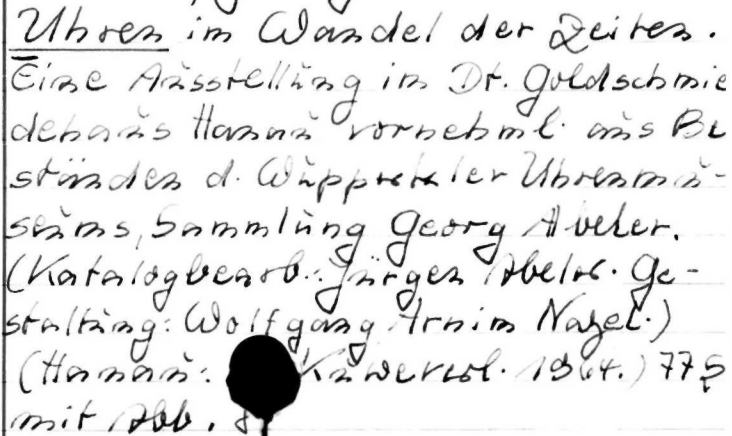 Uhren im Wandel der Zeiten.
Eine Ausstellung im Dt. Goldschmie
dehaus Hanau vornehml. aus Be
ständen d. Wuppertaler Uhrenmu-
seums, Sammlung Georg Abeler.
(Katalogbearb.: Jürgen Abeler. Ge-
staltung: Wolfgang Arnim Nagel.)
(Hanau: 1964.) 77 S
mit Abb.